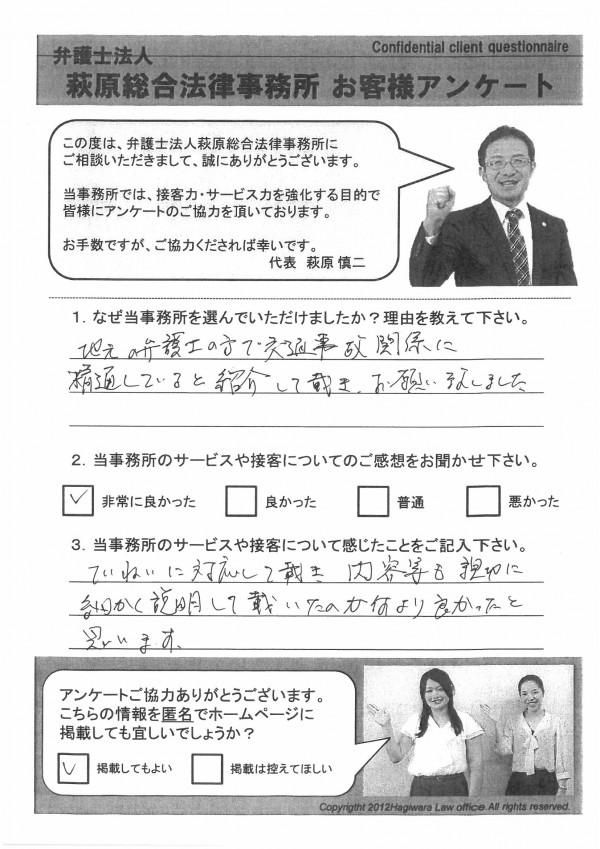 Confidential client questionnaire
弁護士法人
萩原総合法律事務所 お客様アンケート
この度は、弁護士法人萩原総合法律事務所に
ご相談いただきまして、誠にありがとうございます。
当事務所では、接客力・サービス力を強化する目的で
皆様にアンケートのご協力を頂いております。
お手数ですが、ご協力くだされば幸いです。
代表 萩原 慎二
1. なぜ当事務所を選んでいただけましたか?理由を教えて下さい。
地元の弁護士の方で交通事故関係に
精通していると紹介して戴き、お願い致しました
2. 当事務所のサービスや接客についてのご感想をお聞かせ下さい。
非常に良かった 良かった 普通 悪かった
3. 当事務所のサービスや接客について感じたことをご記入下さい。
ていねいに対応して戴き 内容等も親切に
細かく説明して戴いたのが何より良かったと
思います。
アンケートご協力ありがとうございます。
こちらの情報を匿名でホームページに
掲載しても宜しいでしょうか?
掲載してもよい 掲載は控えてほしい
Copyrigtht 2012Hagiwara Law office.All rights reserved.